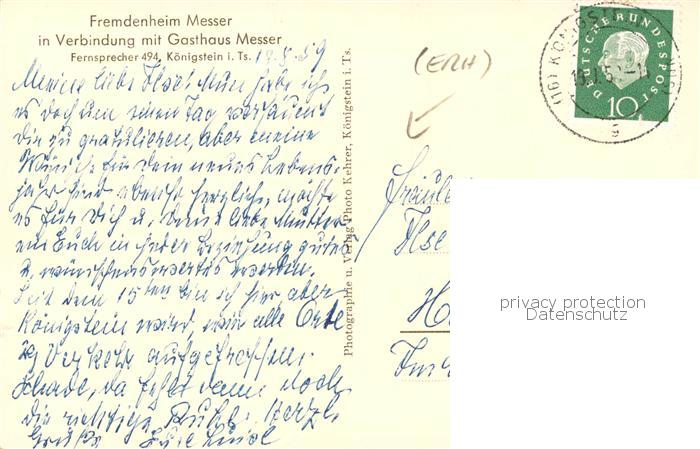 Fremdenheim Messer
in Verbindung mit Gasthaus Messer
Fernsprecher 494, Königstein i. Ts.
59
Meine liebe Ilse! Nun habe ich
es doch um einen Tag versäumt
Dir zu gratulieren, aber meine
Wünsche für Dein neues Lebens-
jahr sind ebenso herzlich, möchte
es für Dich u. Deine liebe Mutter
ein Euch in jeder Beziehung gutes
u. wünschenswertes werden.
Seit dem 15ten bin ich hier, aber
Königstein wird, wie alle Orte
Verkehr aufgefressen.
Schade, da fehlt dann doch
die richtige Ruhe. Herzl.
Grüße
Photographie u. Verlag Photo Kehrer, Königstein i. Ts.
(ERH)
Fräulein
Ilse
DEUTSCHE BUNDESPOST
10
(16) KÖNIGST
privacy protection
Datenschutz